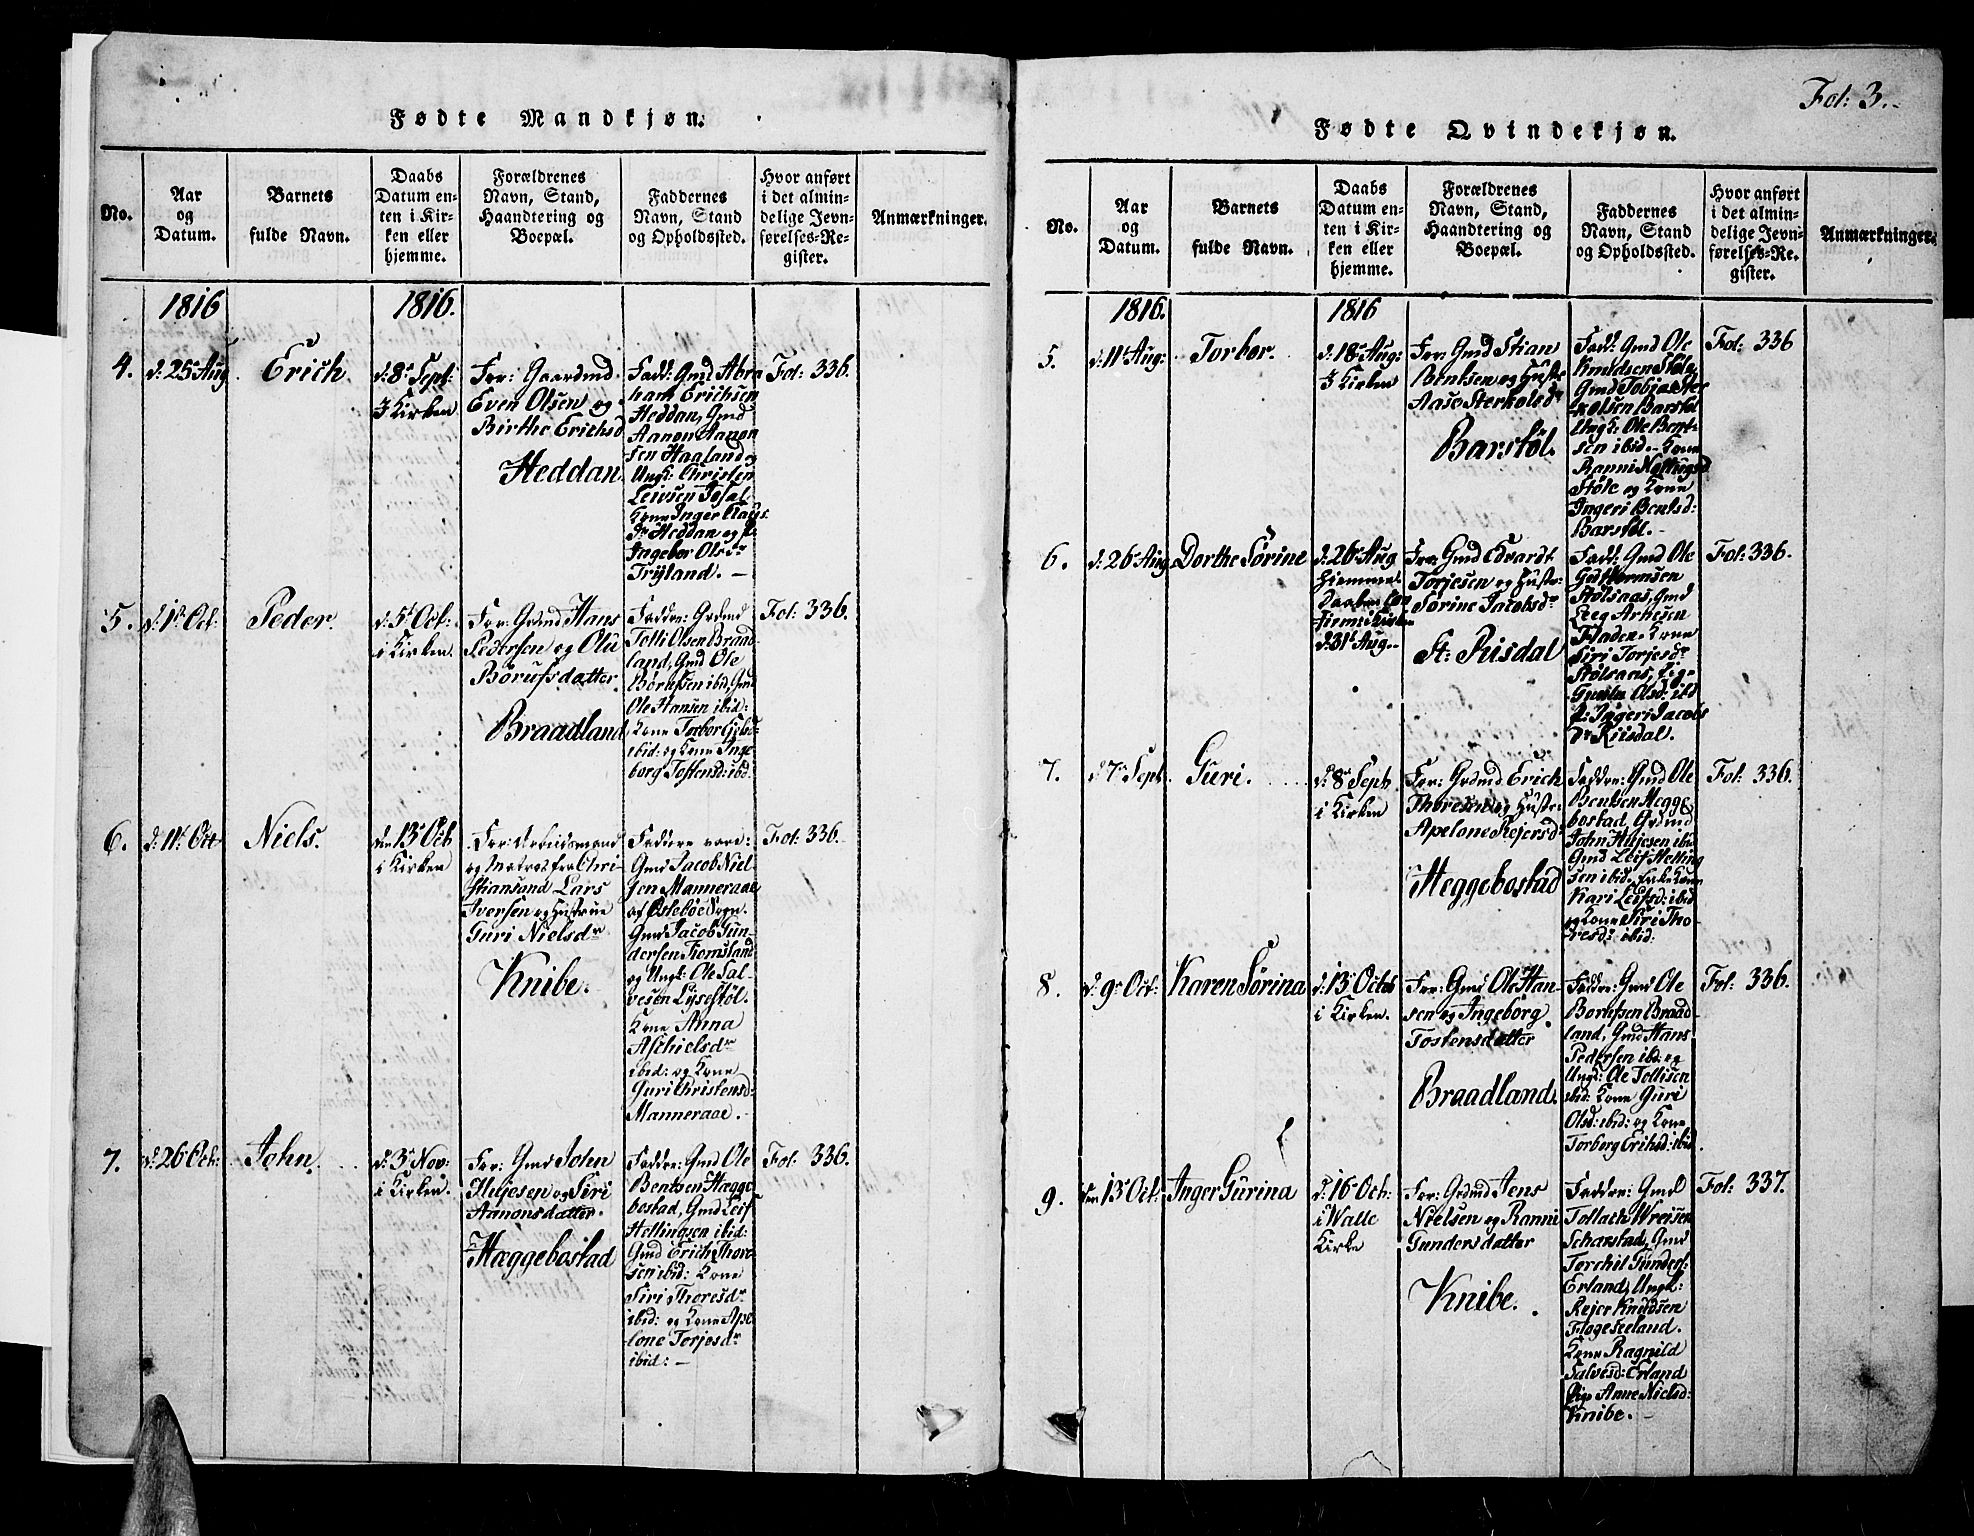 Fødte Mandkjøn.
No.
Aar
og
Datum.
Barnets
fulde Navn.
Daabs
Datum en-
ten i Kir-
ken eller
hjemme.
Forældrenes
Navn, Stand,
Haandtering og
Boepæl.
Faddernes
Navn, Stand
og Opholdssted.
Hvor anført
i det almin-
delige Jevn-
førelses-Re-
gister.
Anmærkninger.
1816
1816.
4.
d: 25 Aug
Erich
d: 8 Sept:
J Kirken
For: Gaardmd
Even Olsen og
Birthe Erichsd
Heddan.
Fadd: Gmd Abra
ham Erichsen
Heddan, Gmd
Aanon Aanon
sen Haaland og
Ungk: Christen
Leivsen
Kone Inger
Heddan og
Ingebor Olsdr
Tryland. –
Fol: 336.
5.
d: 1 Oct:
Peder.
d: 5 Oct:
i Kirken.
For: Grdmd Hans
Pedersen og Olu
Børufsdatter.
Braadland
Faddre: Grdmd
Tolli Olsen Braad-
land, Gmd Ole
Børufsen ibid, Gmd
Ole Hansen ibid:
Kone Torbor
ibid: og Kone Inge
borg Tostensd: ibd
Fol: 336.
6.
d: 11 Oct
Niels.
den 13 Oct
i Kirken
For: Arbeidsmand
og Matros fra Chri-
stiansand Lars
Iversen og Hustrue
Guri Nielsdr
Knibe.
Faddere vare:
Gmd Jacob Niel
sen Manneraae
af Øslebøe Sogn.
Gmd Jacob Gun
dersen Tromsland
og Ungk: Ole Sal-
vesen Lysestøl.
Kone Anna
Aschielsdr
ibid: og Kone
Guri Christensd:
Manneraae. –
Fol: 336.
7.
d: 26 Oct:
John.
d: 3 Nov:
i Kirken.
For: Gmd John
Hujesen og Siri
Aanonsdatter.
Hæggebostad
Faddre: Gmd Ole
Bentsen Hægge
bostad, Gmd Leif
Hellingsen ibid:
Gmd Erich Thore
sen ibid: Kone
Siri Thoresdr
ibid: og Kone Ape
lone Torjesdr
ibid: –
Fol: 336.
Fol: 3.
Fødte Qvindekjøn.
No.
Aar
og
Datum.
Barnets
fulde Navn.
Daabs
Datum en-
ten i Kir-
ken eller
hjemme.
Forældrenes
Navn, Stand,
Haandtering og
Boepæl.
Faddernes
Navn, Stand
og Opholdssted.
Hvor anført
i det almin-
delige Jevn-
førelses-Re-
gister.
Anmærkninger.
1816.
1816
5.
d: 11 Aug:
Torbor.
d: 18 Aug:
J Kirken
For: Gmd Stian
Bentsen og Hustr
Aase Sterkolsdr
Barstøl.
Fadd: Gmd Ole
Knudsen Støle,
Gmd Tobias Ster
kolsen Barstøl
Ungk: Ole Bent-
sen ibid. – Kone
Ranni
Støle og Kone
Ingeri Bentsd:
Barstøl. –
Fol: 336
6.
d: 26 Aug
Dorthe Sørine
d: 26 Aug
Hiemme
Daaben
firmet i Kirken
d: 31 Aug. –
For: Gmd Evardt
Torjesen og Hustr:
Sørine Jacobsdr
St: Riisdal
Fadd: Gmd Ole
Guttormsen
Stølsaas, Gmd
Leeg Arnesen
Fladen. Kone
Siri Torjesdr
Stølsaas, Pig-
Gunild Olsd: ibd
P: Ingeri Jacobs
Dr Riisdal.
Fol: 336.
7.
d 7 Sept
Guri.
d: 8 Sept
i Kirken
For: Grdmd Erich
Thoresen og Hustr-
Apelone Rejersd:
Heggebostad
Faddre: Gmd Ole
Bentsen Hegge
bostad, Grdmd
John Hujesen ibid
Gmd Leif Helling
sen ibid.
Kari Leifsd: ibid
og Kone Siri Tho-
resd: ibid:
Fol: 336.
8.
d: 9 Oct:
Karen Sørina
d: 13 Octob
i Kirken.
For: Gmd Ole Han-
sen og Ingeborg
Tostensdatter
Braadland.
Faddre: Gmd Ole
Borufsen Braad-
land, Gmd Hans
Pedersen ibd: og
Ungd: Ole Tollisen
ibid: Kone Guri
Olsd: ibid: og Kone
Torborg Erichsd: ibid.
Fol: 336.
9.
den 13 Oct.
Inger Gurina
d: 16 Oct:
i Walle
Kirke
For: Grdmd Jens
Nielsen og Ranni
Gundersdatter
Knibe.
Faddre: Gmd
Tollach Wreisen
Scharstad, Gmd
Torchil Gunders:
Erland, Ungk:
Rejer Knudsen
Flogeseeland.
Kone Ragnild
Salvesd: Erland
Pige Anne Nielsd:
Knibe. –
Fol: 337.